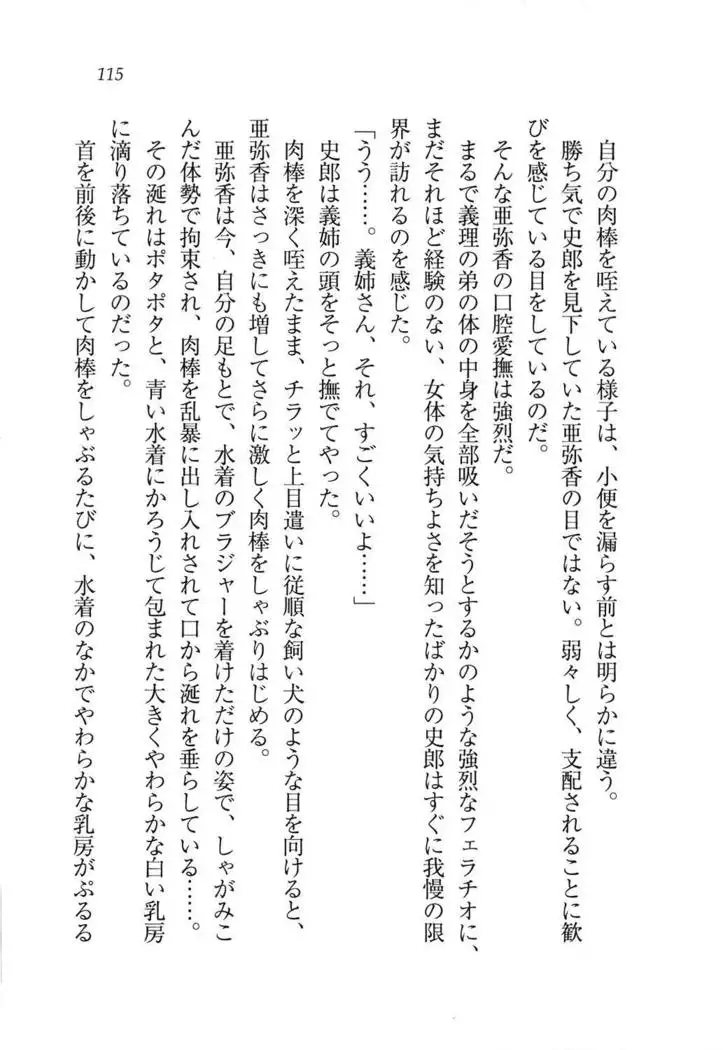 115
自分の肉棒を咥えている様子は、小便を漏らす前とは明らかに違う。
勝ち気で史郎を見下していた亜弥香の目ではない。弱々しく、支配されることに歓
びを感じている目をしているのだ。
そんな亜弥香の口腔愛撫は強烈だ。
まるで義理の弟の体の中身を全部吸いだそうとするかのような強烈なフェラチオに、
まだそれほど経験のない、女体の気持ちよさを知ったばかりの史郎はすぐに我慢の限
界が訪れるのを感じた。
「うう……。義姉さん、それ、すごくいいよ……」
史郎は義姉の頭をそっと撫でてやった。
肉棒を深く咥えたまま、チラッと上目遣いに従順な飼い犬のような目を向けると、
亜弥香はさっきにも増してさらに激しく肉棒をしゃぶりはじめる。
亜弥香は今、自分の足もとで、水着のブラジャーを着けただけの姿で、しゃがみこ
んだ体勢で拘束され、肉棒を乱暴に出し入れされて口から涎れを垂らしている……。
その涎れはポタポタと、青い水着にかろうじて包まれた大きくやわらかな白い乳房
に滴り落ちているのだった。
首を前後に動かして肉棒をしゃぶるたびに、水着のなかでやわらかな乳房がぷるる